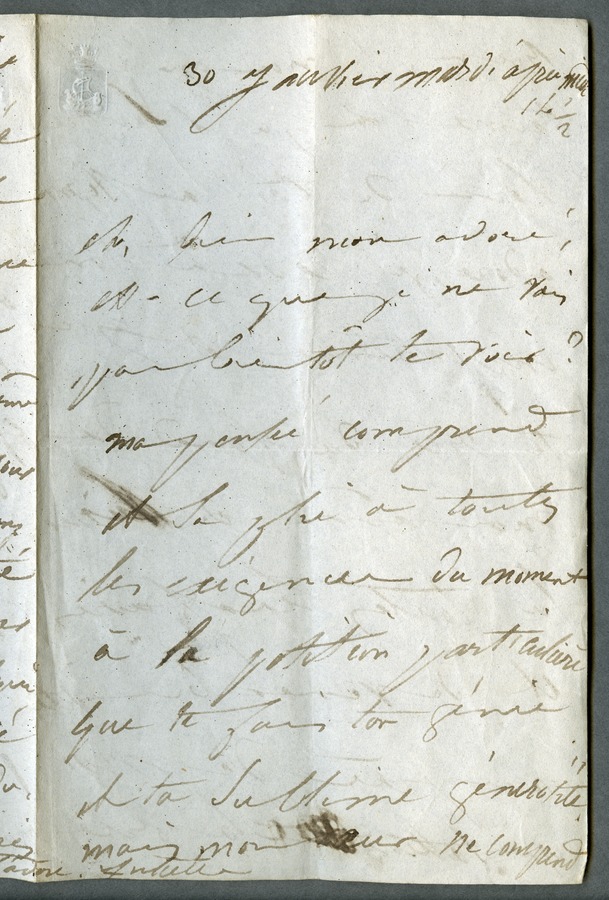 30 janvier mardi après midi
1 h ½
Eh, bien mon adoré,
est-ce que je ne vais
pas bientôt te voir ?
ma pensée comprend
et se plie à toutes
les exigences du moment
à la position particulière
que te fais ton génie
et ta sublime générosité
mais mon cœur ne comprend
Juliette